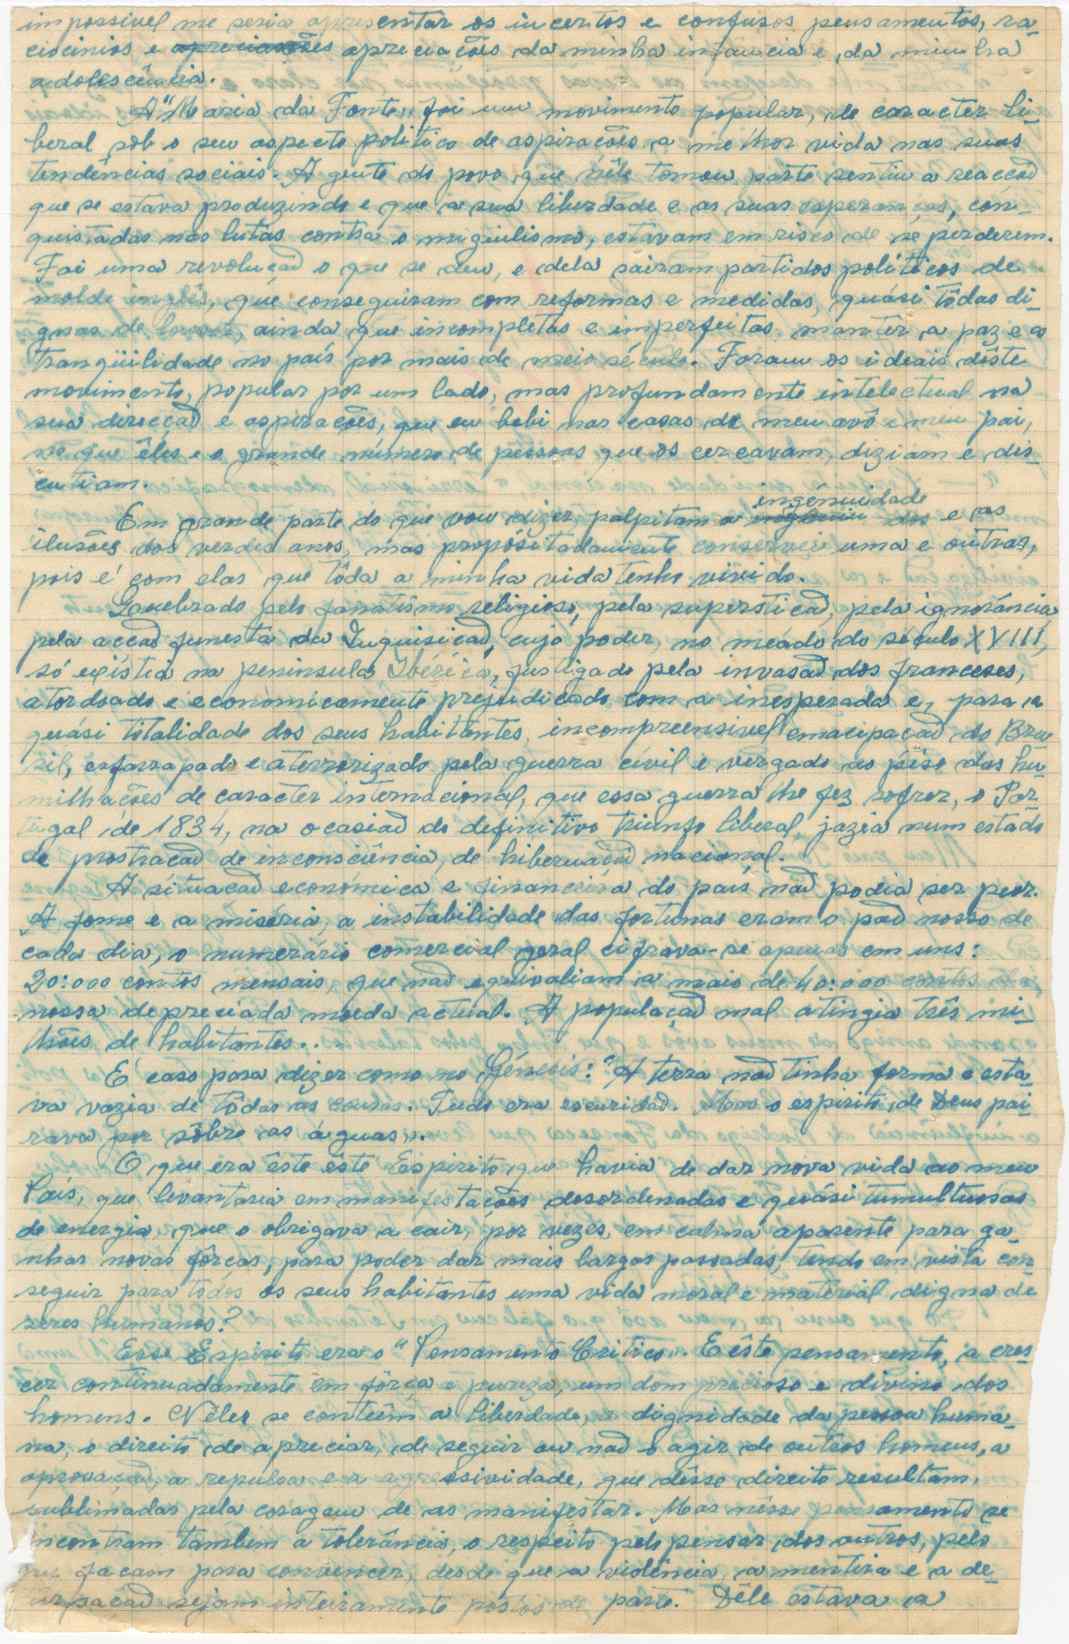 impossivel me seria apresentar os incertos e confusos pensamentos, ra-
ciocinios e apreciações apreciações da minha infancia e da minha
adolescência.
A "Maria da Fonte" foi um movimento popular, de caracter li-
beral sob o seu aspecto politico de aspirações a melhor vida nas suas
tendências sociais. A gente do povo que nêle tomou parte sentiu a reacção
que se estava produzindo e que a sua liberdade e as suas esperanças, con-
quistadas nas lutas contra o miguelismo, estavam em risco de se perderem.
Foi uma revolução o que se deu, e dela sairam partidos politicos de
molde inglês, que conseguiram com reformas e medidas, quási tôdas di-
gnas de louvor, ainda que incompletas e imperfeitas manter a paz e a
tranqüilidade no país por mais de meio século. Foram os ideais dêste
movimento, popular por um lado, mas profundamente intelectual na
sua direcção e aspirações, que eu bebi nas casas de meu avô e meu pai,
no que êles e o grande número de pessoas que os cercavam, diziam e dis-
cutiam.
Em grande parte do que vou dizer, palpitam a ingénuidade dos e as
ilusões dos verdes anos, mas propositadamente conservei uma e outras,
pois é com elas que tôda a minha vida tenho vivido.
Quebrado pelo fanatismo religioso, pela superstição, pela ignorância
pela acção funesta da Inquisição, cujo poder, no meado do século XVIII,
só existia na peninsula Ibérica, fustigado pela invasão dos franceses,
atordoado e económicamente prejudicado com a inesperada e, para a
quási totalidade dos seus habitantes, incompreensivel emacipação do Bra-
sil, esfarrapado e aterrorizado pela guerra civil e vergado ao pêso das hu-
milhações de caracter internacional, que essa guerra lhe fez sofrer, o Por-
tugal de 1834, na ocasião do definitivo triunfo liberal, jazia num estado
de prostração de inconsciência, de hibernação nacional.
A situação económica e financeira do país não podia ser peor.
A fome e a miséria, a instabilidade das fortunas eram o pão nosso de
cada dia, o numerário comercial geral cifrava-se apenas em uns:
20:000 contos mensais, que não equivaliam a mais de 40:000 contos da
nossa depreciada moeda actual. A população mal atingia três mi-
lhões de habitantes..
É caso para dizer como no Génesis: "A terra não tinha forma e esta-
va vazia de tôdas as cousas. Tudo era escuridão. Mas o espirito de Deus pai-
rava por sôbre as águas".
O que era êste êste Espirito que havia de dar nova vida ao meu
País, que levantaria em manifestações desordenadas e quási tumultuosas
de energia que o obrigava a cair, por vezes, em calma aparente para ga-
nhar novas fôrças, para poder dar mais largas passadas, tendo em vista con-
seguir para todos os seus habitantes uma vida moral e material digna de
seres humanos?
Esse Espirito era o "Pensamento Critico". E êste pensamento, a cres-
cer continuadamente em fôrça e pureza, um dom precioso e divino dos
homens. Nêles se contêm a liberdade, a dignidade da pessoa huma-
na, o direito de apreciar, de seguir ou não o agir de outros homens, a
aprovação, a repulsa e a agressividade, que dêsse direito resultam,
sublimadas pela coragem de as manifestar. Mas nêsse pensamento se
incontram tambem a tolerância, o respeito pelo pensar dos outros, pelo
que façam para convincer, desde que a violência, a mentira e a de-
turpação sejam inteiramente postos de parte. Dêle estava a